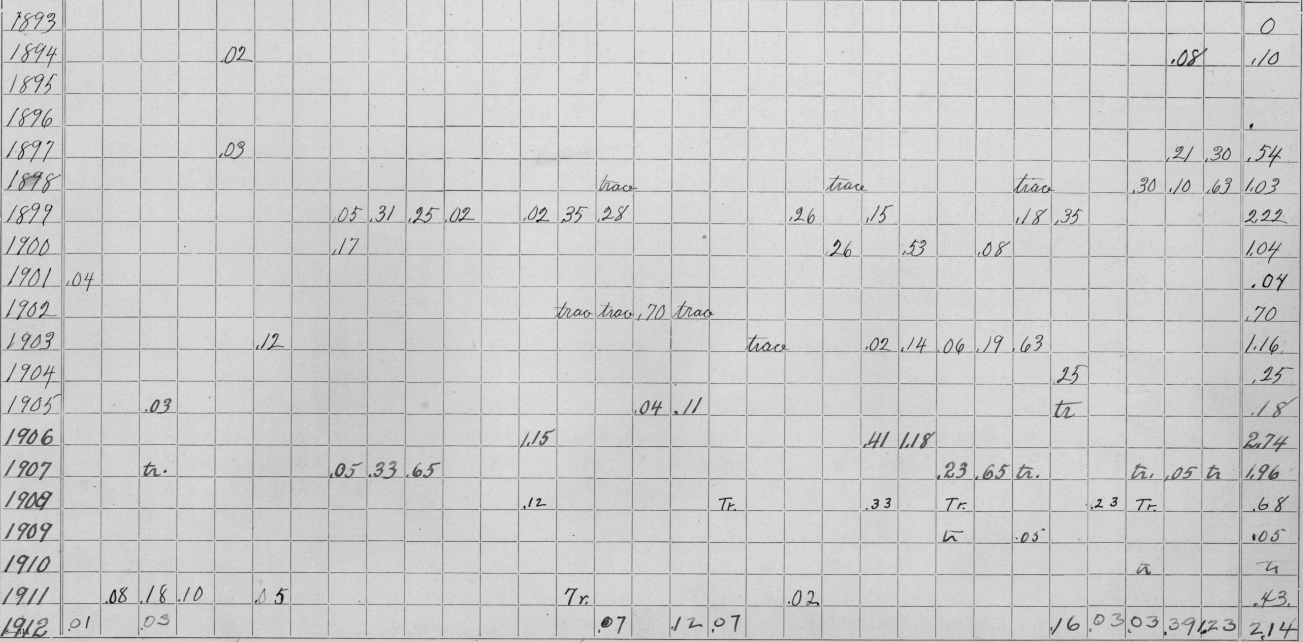 1893 0
1894 .02 .08 .10
1895
1896 .
1897 .03 .21 .30 .54
1898 trace trace trace .30 .10 .63 1.03
1899 .05 .31 .25 .02 .02 .35 .28 .26 .15 .18 .35 2.22
1900 .17 .26 .53 .08 1.04
1901 .04 .04
1902 trace trace .70 trace .70
1903 .12 trace .02 .14 .06 .19 .63 1.16
1904 .25 .25
1905 .03 .04 .11 tr .18
1906 1.15 .41 1.18 2.74
1907 tr. .05 .33 .65 .23 .65 tr. tr. .05 tr 1.96
1908 .12 Tr. .33 Tr. .23 Tr. .68
1909 tr .05 .05
1910 tr tr
1911 .08 .18 .10 .05 Tr. .02 .43
1912 .01 .03 .07 .12 .07 .16 .03 .03 .39 1.23 2.14